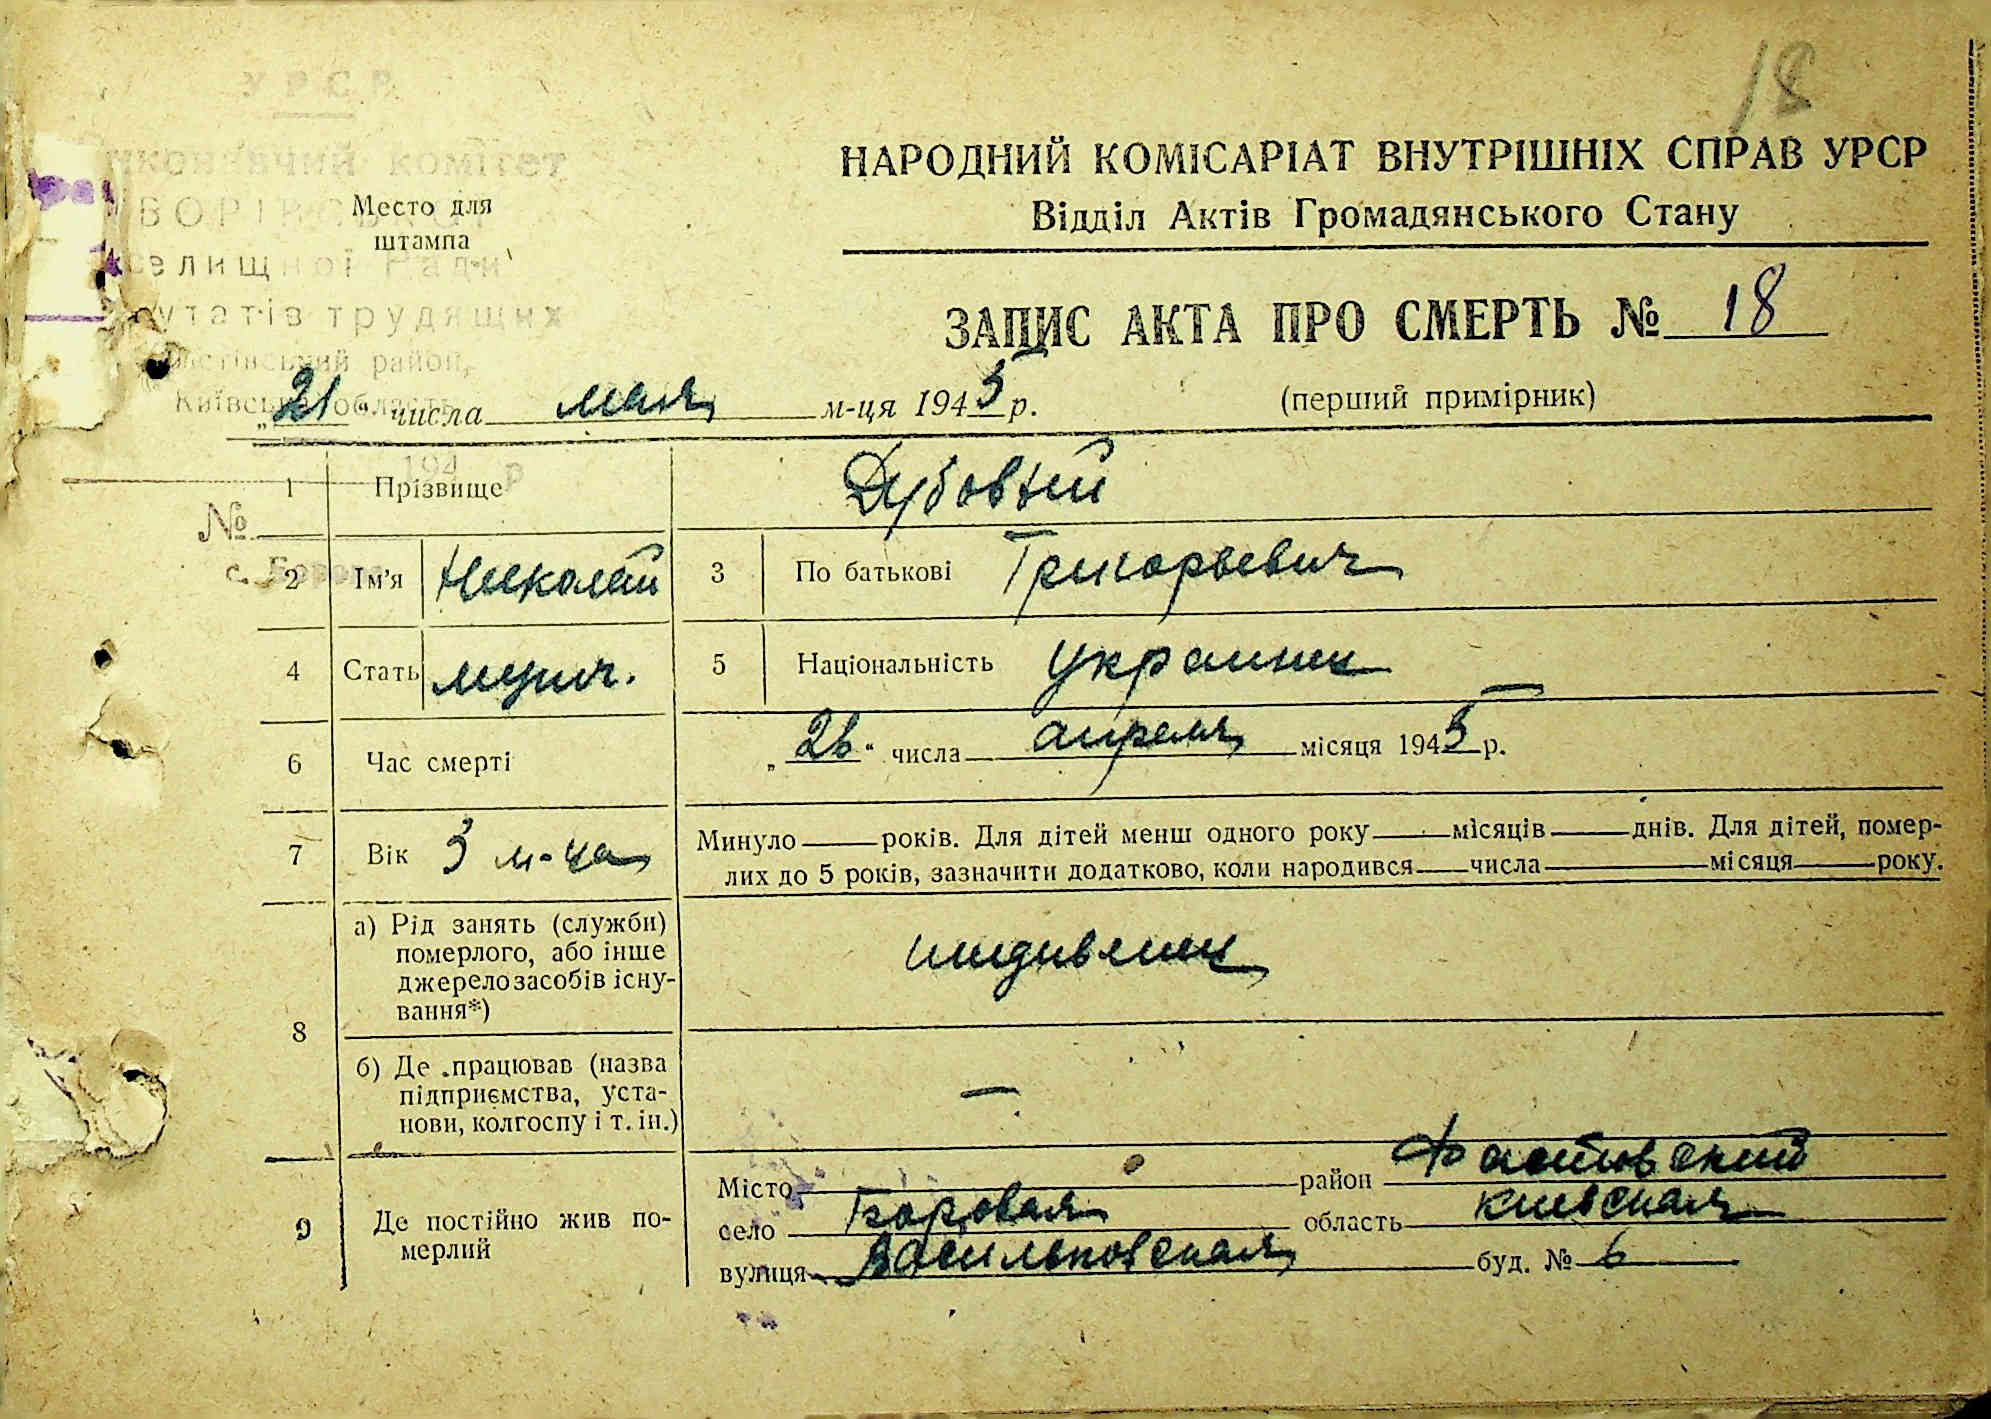 18
УРСР
комітет
Место для
штампа
селищної Ради
утатів трудящих
район,
Київська область
НАРОДНИЙ КОМІСАРІАТ ВНУТРІШНІХ СПРАВ УРСР
Відділ Актів Громадянського Стану
ЗАПИС АКТА ПРО СМЕРТЬ № 18
„21“ числа мая м-ця 1945 р.
(перший примірник)
194 р
№
1 Прізвище Дубовый
2 Ім'я Николай 3 По батькові Григорьевич
4 Стать мужч. 5 Національність украинец
6 Час смерті „26“ числа апреля місяця 1945 р.
7 Вік 3 м-ца Минуло років. Для дітей менш одного року місяців днів. Для дітей, помер-
лих до 5 років, зазначити додатково, коли народився числа місяця року.
8 а) Рід занять (служби)
померлого, або інше
джерело засобів існу-
вання*)
иждивенец
б) Де працював (назва
підприємства, уста-
нови, колгоспу і т. ін.)
—
9 Де постійно жив по-
мерлий
Місто район Фастовский
село Боровая область Киевская
вулиця Васильковская буд. № 6